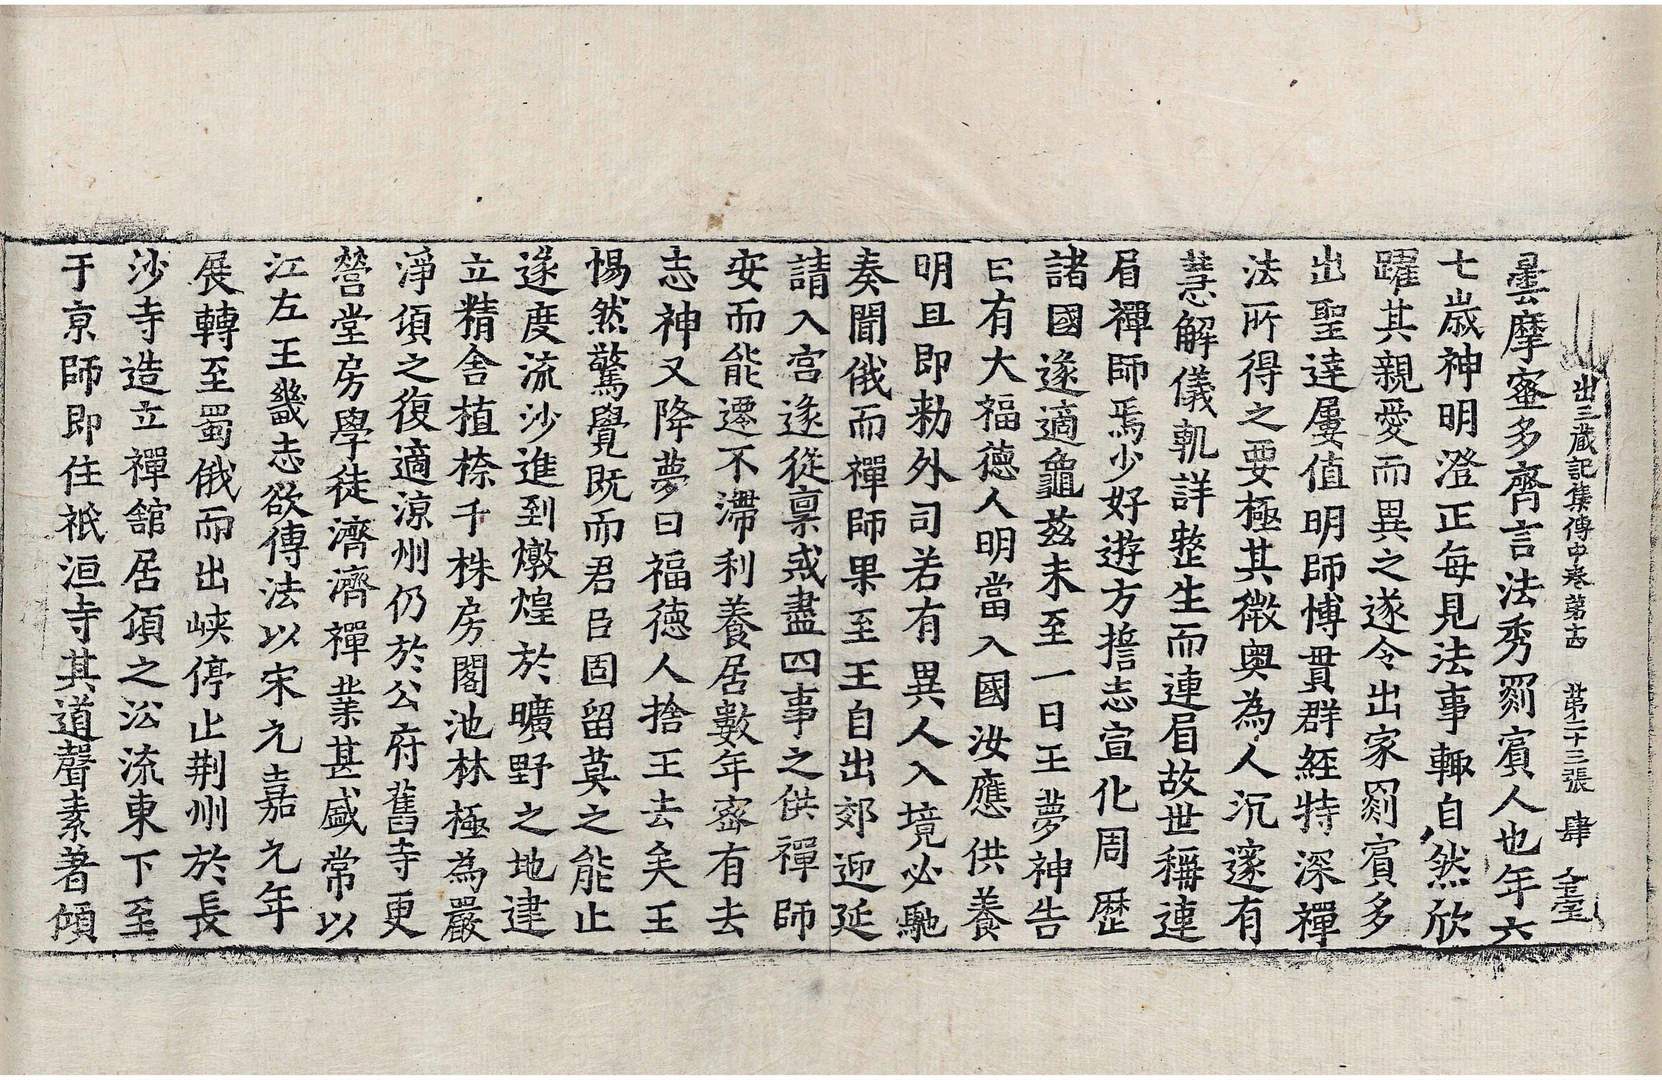 出三藏記集傳中卷第十四 第二十三張 肆
曇摩蜜多齊言法秀罽賓人也年六
七歲神明澄正每見法事輙自然欣
躍其親愛而異之遂令出家罽賓多
出聖達屢值明師博貫群經特深禪
法所得之要極其微奧為人沉邃有
慧解儀軌詳整生而連眉故世稱連
眉禪師焉少好遊方誓志宣化周歷
諸國遂適龜茲未至一日王夢神告
曰有大福德人明當入國汝應供養
明旦即勑外司若有異人入境必馳
奏聞俄而禪師果至王自出郊迎延
請入宮遂從稟戒盡四事之供禪師
安而能遷不滯利養居數年密有去
志神又降夢曰福德人捨王去矣王
惕然驚覺既而君臣固留莫之能止
遂度流沙進到燉煌於曠野之地建
立精舍植㮈千株房閣池林極為嚴
淨頃之復適涼州仍於公府舊寺更
營堂房學徒濟濟禪業甚盛常以
江左王畿志欲傳法以宋元嘉元年
展轉至蜀俄而出峽停止荆州於長
沙寺造立禪舘居頃之沿流東下至
于京師即住祇洹寺其道聲素著傾